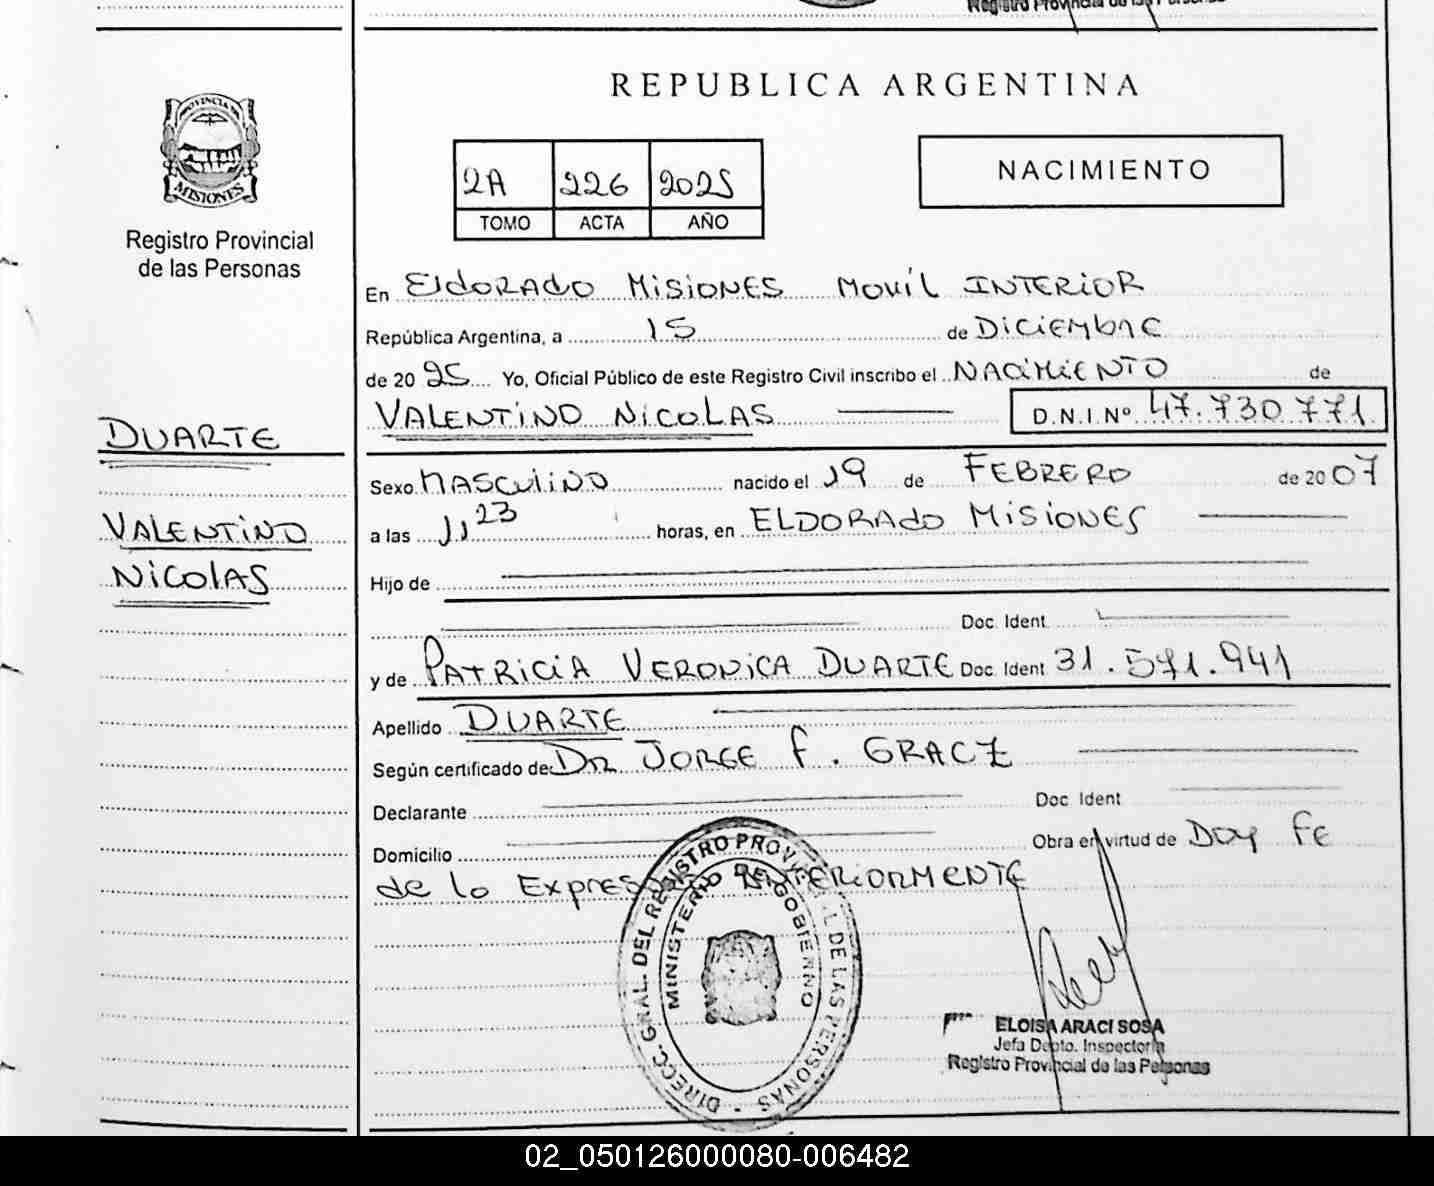 Registro Provincial de las Personas
REPUBLICA ARGENTINA
PROVINCIA DE
MISIONES
Registro Provincial
de las Personas
2A 226 2025
TOMO ACTA AÑO
NACIMIENTO
En Eldorado Misiones Movil Interior
República Argentina, a 15 de Diciembre
de 2025 Yo, Oficial Público de este Registro Civil inscribo el Nacimiento de
Valentino Nicolas D.N.I.Nº 47.730.771
DUARTE
Valentino
Nicolas
Sexo Masculino nacido el 19 de Febrero de 2007
a las 11 23 horas, en Eldorado Misiones
Hijo de
Doc. Ident
y de Patricia Veronica Duarte Doc. Ident 31.571.941
Apellido Duarte
Según certificado de: Dr Jorge F. Gracz
Declarante Doc Ident
Domicilio Obra en virtud de Doy Fe
de lo Expresado Anteriormente
DIRECC. GRAL. DEL REGISTRO PROVINCIAL DE LAS PERSONAS
MINISTERIO DE GOBIERNO
ELOISA ARACI SOSA
Jefa Depto. Inspectoría
Registro Provincial de las Personas
02_050126000080-006482